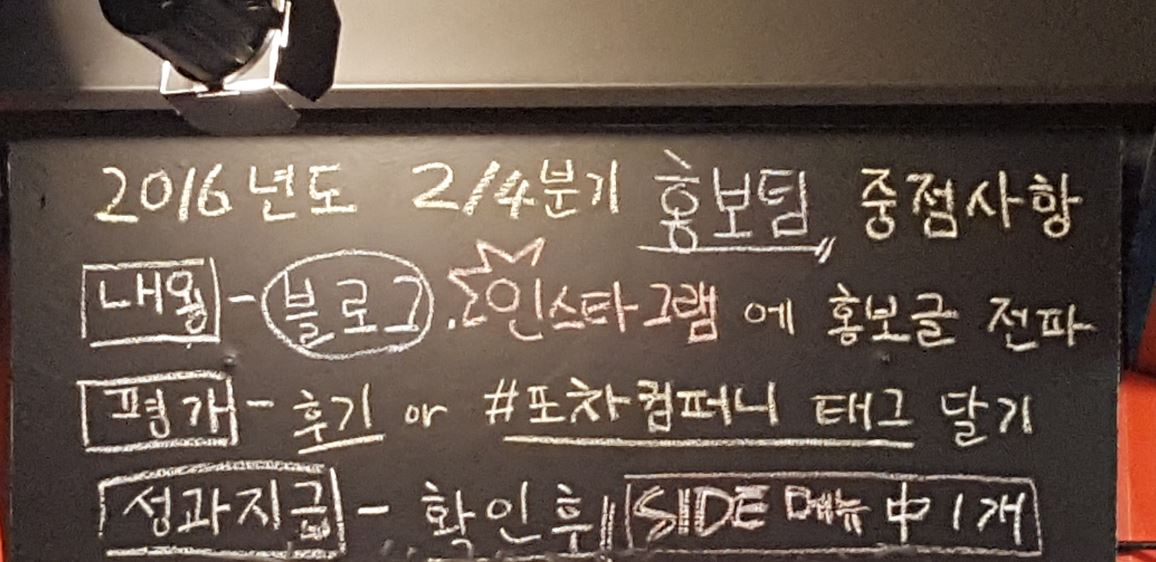 2016년도 2/4분기 홍보팀 중점사항
내용 - 블로그. 인스타그램에 홍보글 전파
평가 - 후기 or #포차컴퍼니 태그 달기
성과지급 - 확인후 SIDE 메뉴 中 1개